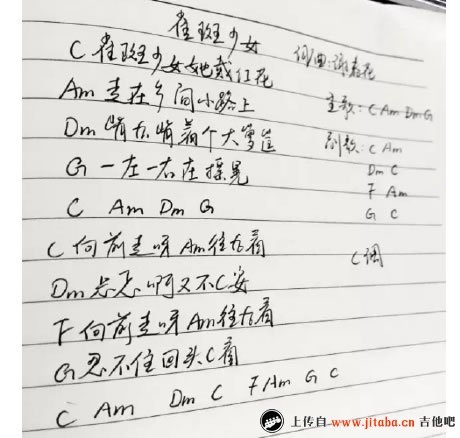 雀斑少女
词曲:谢春花
C 雀斑少女她戴红花
主歌: C Am Dm G
Am 走在乡间小路上
副歌: C Am
Dm 背后背着个大箩筐
Dm C
G 一左一右在摇晃
F Am
C Am Dm G
G C
C调
C 向前走呀 Am 往右看
Dm 忐忑啊又不C安
F 向前走呀 Am 往右看
G 忍不住回头C看
C Am Dm C F Am G C
上传自 www.jitaba.cn 吉他吧